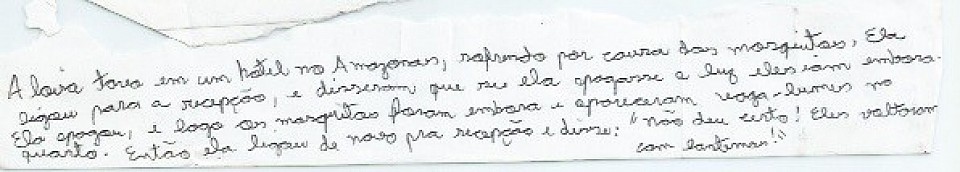 A loira tava em um hotel no Amazonas, sofrendo por causa dos mosquitos, Ela
ligou para a recepção, e disseram que se ela apagasse a luz eles iam embora.
Ela apagou, e logo os mosquitos foram embora e apareceram vaga-lumes no
quarto. Então ela ligou de novo pra recepção e disse: "não deu certo! Eles voltaram
com lanternas!"